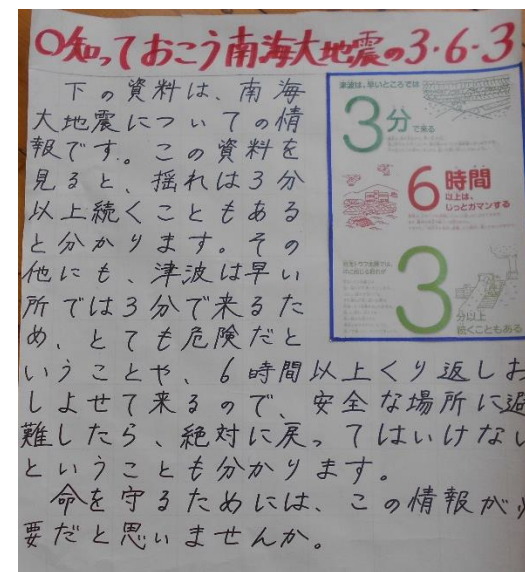 〇知っておこう南海大地震の3・6・3
下の資料は、南海
大地震についての情
報です。この資料を
見ると、揺れは3分
以上続くこともある
と分かります。その
他にも、津波は早い
所では3分で来るた
め、とても危険だと
いうことや、6時間以上くり返しお
しよせて来るので、安全な場所に避
難したら、絶対に戻ってはいけない
ということも分かります。
命を守るためには、この情報が必
要だと思いませんか。
津波は、早いところでは
3分で来る
6時間
以上は、
じっとガマンする
3
分以上
続くこともある